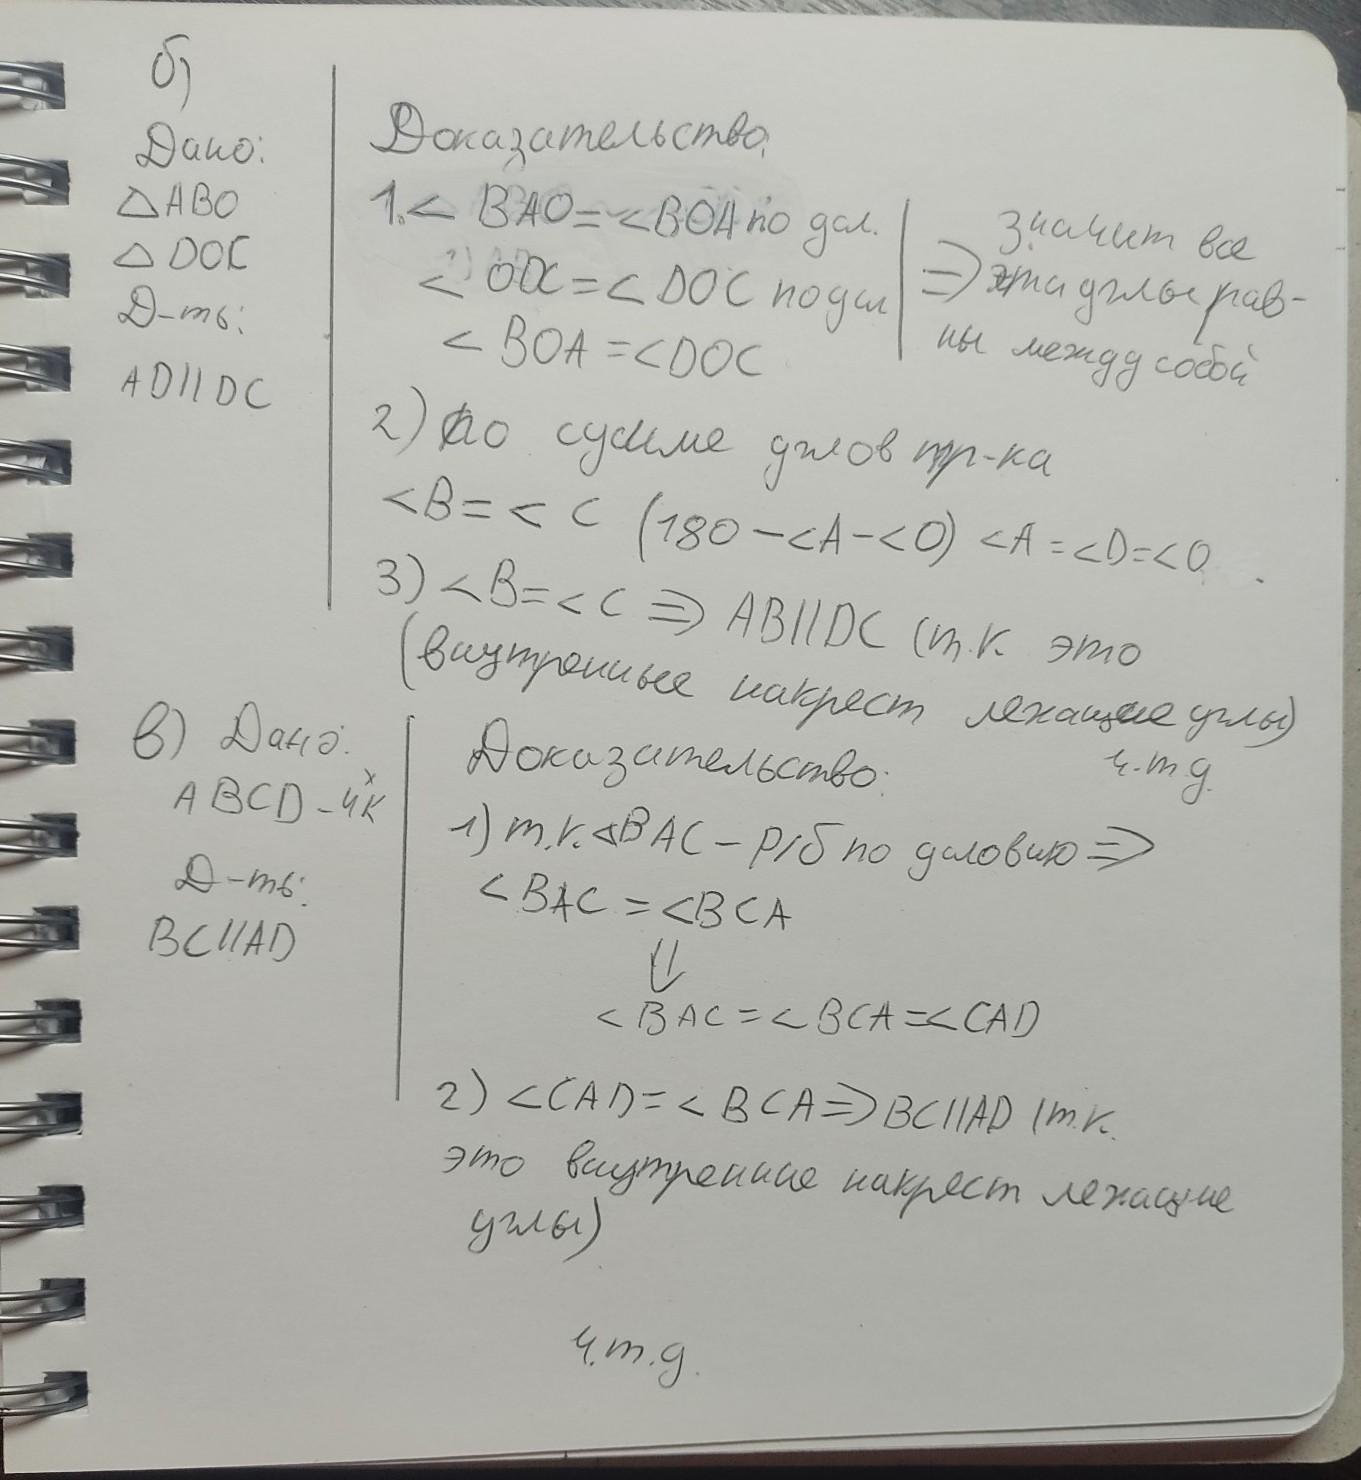 б)
Дано:
△ABO
△DOC
Д-ть:
AD||DC
Доказательство:
1. < BAO = < BOA по усл.
< ODC = < DOC по усл
< BOA = < DOC
=> значит все
эти углы рав-
ны между собой
2) по сумме углов тр-ка
< B = < C (180 - < A - < O) < A = < D = < O
3) < B = < C => AB||DC (т.к. это
(внутренные накрест лежащие углы)
ч.т.д.
в) Дано:
ABCD - 4х
к
Д-ть:
BC||AD
Доказательство:
1) т.к. △BAC - р/б по условию =>
< BAC = < BCA
⇓
< BAC = < BCA = < CAD
2) < CAD = < BCA => BC||AD (т.к.
это внутренние накрест лежащие
углы)
ч.т.д.